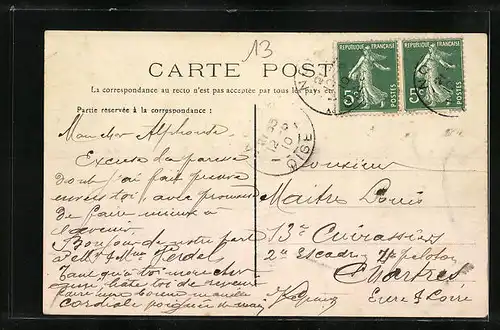 13
CARTE POST
La correspondance au recto n'est pas acceptée par tous les pays
Partie réservée à la correspondance :
REPUBLIQUE FRANÇAISE
5c
POSTES
REPUBLIQUE FRANÇAISE
5c
POSTES
OISE
Mon cher Alphonse.
Excuse la paresse
dont j'ai fait preuve
envers toi, avec promesse
de faire mieux à
l'avenir.
Bonjour de notre part
à Mr & Mme
Tant que toi mon cher
ami, hâte toi de revenir
faire une bonne
cordiale poignée de main
Monsieur
Maitre Louis
13e Cuirassiers
2e Escadron 4e peloton
Chartres
Eure & Loire